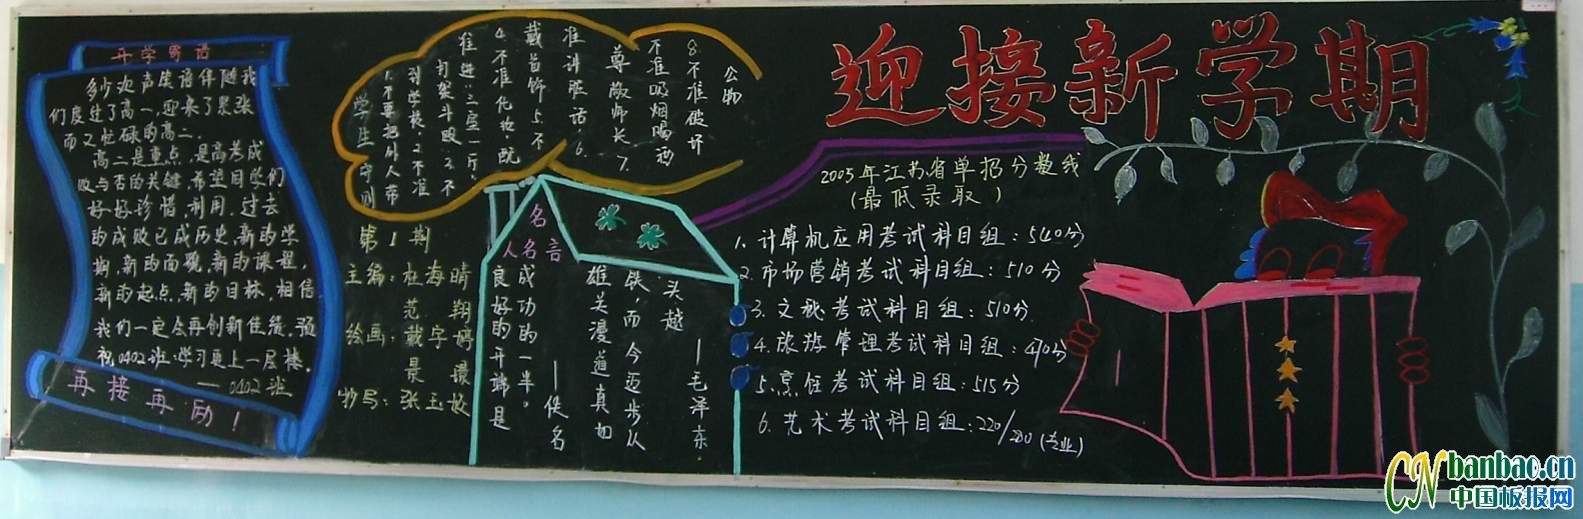 迎接新学期
开学寄语
多少欢声笑语伴随我
们度过了高一,迎来了紧张
而又忙碌的高二.
高二是重点,是高考成
败与否的关键.希望同学们
好好珍惜.利用.过去
的成败已成历史,新的学
期,新的面貌,新的课程,
新的起点,新的目标,相信
我们一定会再创新佳绩.预
祝0402班学习更上一层楼.
——0402班
再接再励!
学生守则
1.不要把外人带
到学校.2.不准
打架斗殴.3.不
准进“三室一厅”
4.不准化妆.
戴首饰.5.不
准讲脏话.6.
尊敬师长.7.
不准吸烟喝酒
8.不准破坏
公物
第1期
主编:杜海晴
范翔
绘画:戴宇婷
景
抄写:张玉
名人名言
良好的开端是
成功的一半。
——佚名
雄关漫道真如
铁,而今迈步从
头越
——毛泽东.
2005年江苏省单招分数线
(最低录取)
1.计算机应用考试科目组:540分
2.市场营销考试科目组:510分
3.文秘考试科目组:510分.
4.旅游管理考试科目组:490分
5.烹饪考试科目组:515分
6.艺术考试科目组:220/200(专业)
CN banbao.cn
中国板报网